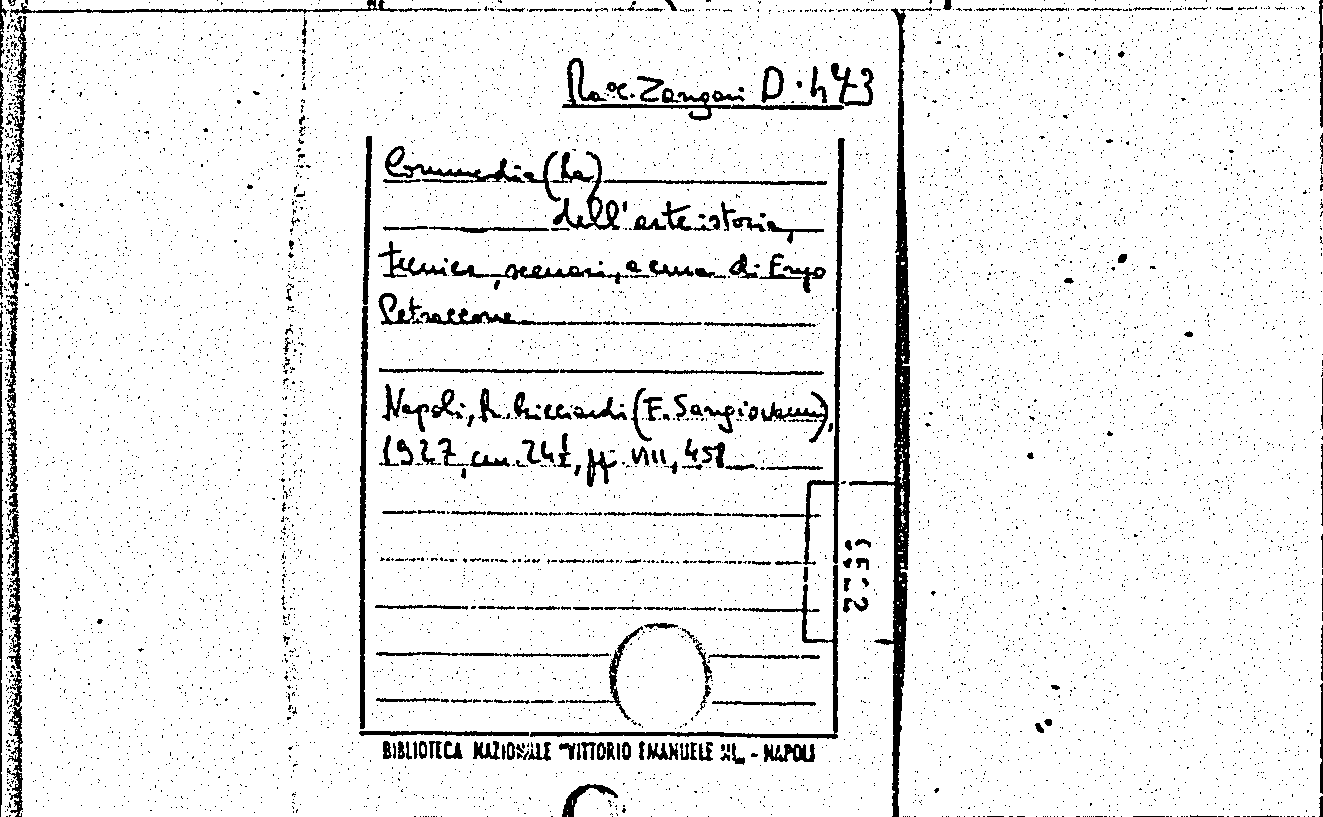 Racc. Zangari D. 473
Commedia (La)
dell'arte: storia,
tecnica, scenari, a cura di Enzo
Petraccone
Napoli, R. Ricciardi (F. Sangiovanni),
1927, cm. 24½, pp. VIII, 458
BIBLIOTECA NAZIONALE "VITTORIO EMANUELE III„ - NAPOLI